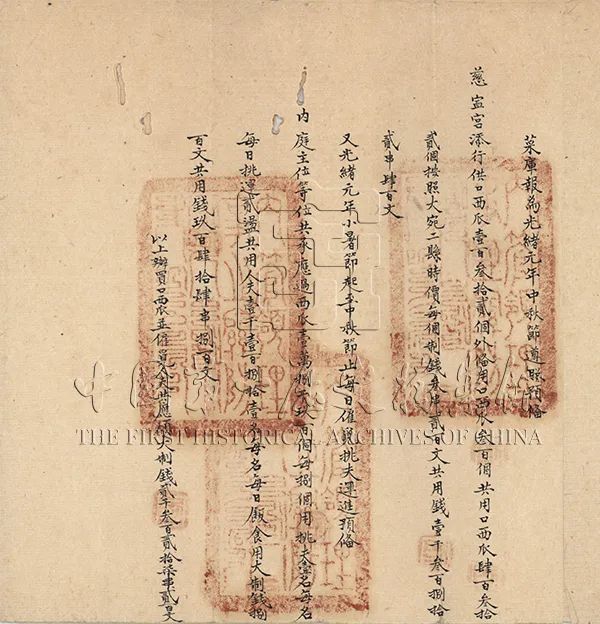 菓庫報為光緒元年中秋節遵照預備
慈寧宮添行供口西瓜壹百叁拾貳個外備用口西瓜叁百個共用口西瓜肆百叁拾
貳個按照大宛二縣時價每個制錢叁串貳百文共用錢壹千叁百捌拾
貳串肆百文
又光緒元年小暑節起至中秋節止每日僱覓挑夫運進預備
內庭主位等位共承應過西瓜壹萬捌千玖百個每捌個用挑夫壹名每名
每日挑運貳盪共用人夫壹千壹百捌拾壹名每名每日飯食用大制錢捌
百文共用錢玖百肆拾肆串捌百文
以上辦買口西瓜並僱覓人夫共應領大制錢貳千叁百貳拾柒串貳百文
THE FIRST HISTORICAL ARCHIVES OF CHINA